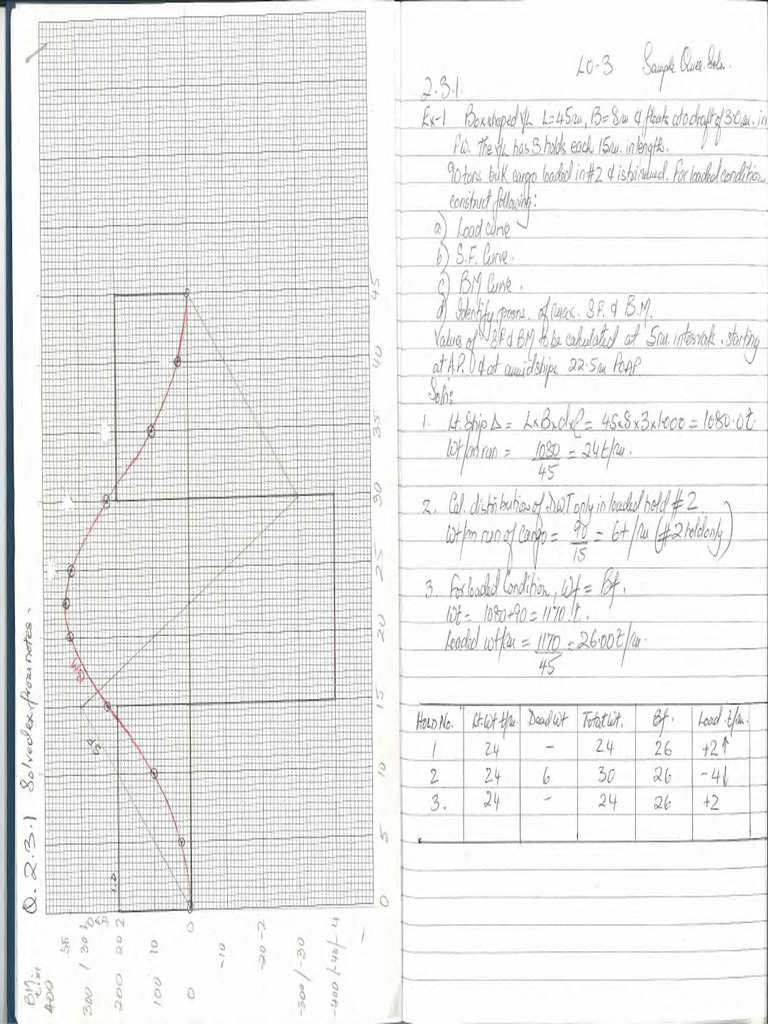 Q. 2.3.1 Solved ex. from notes.
BM
t.m
400
300 / 30
200 20 2
100 10
0 0
-10
-20 -2
-300 / -30
-400 / -40 / -4
SF
L.D
SF
BM
0 5 10 15 20 25 30 35 40 45
LO-3 Sample Ques. Soln.
2.3.1.
Ex-1 Box shaped v/l L=45m, B=8m & floats at a draft of 3.0m. in
FW. The v/l has 3 holds each 15m. in length.
90 tons bulk cargo loaded in #2 & is trimmed. For loaded condition,
construct following:
a) Load curve
b) S.F. Curve.
c) BM Curve.
d) Identify posns. of max. SF. & B.M.
Values of SF & BM to be calculated at 5m. intervals, starting
at A.P. & at amidships 22.5m FOAP
Soln:
1. Lt. Ship Δ = L×B×d×ρ = 45×8×3×1.000 = 1080.0t
Wt/m run = 1080/45 = 24t/m.
2. Cal. distribution of DWT only in loaded hold #2
Wt/m run of cargo = 90/15 = 6t/m (#2 hold only)
3. For loaded Condition, Wt = Bf.
Wt = 1080+90 = 1170 t.
Loaded wt/m = 1170/45 = 26.00t/m.
HOLD No. Lt.Wt t/m. Dead Wt Total Wt. Bf. Load t/m.
1 24 - 24 26 +2↑
2 24 6 30 26 -4↓
3. 24 - 24 26 +2